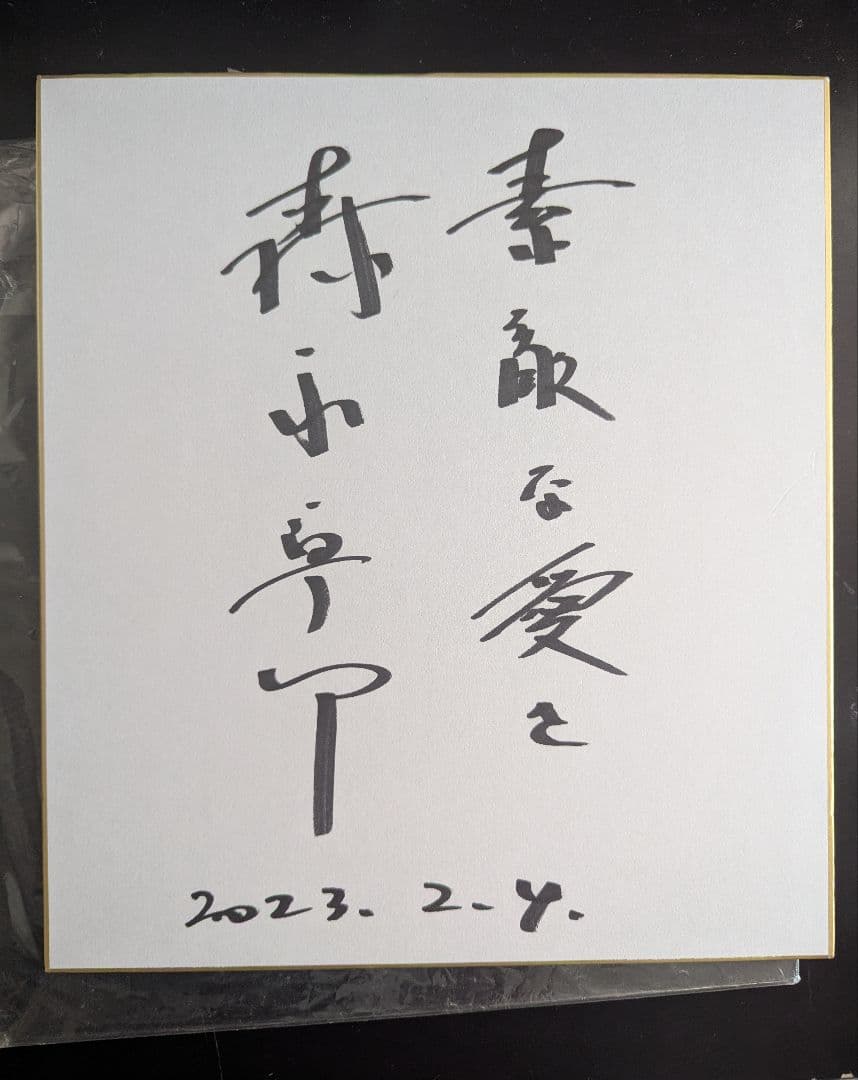 素敵な愛を
森永卓郎
2023.2.4.